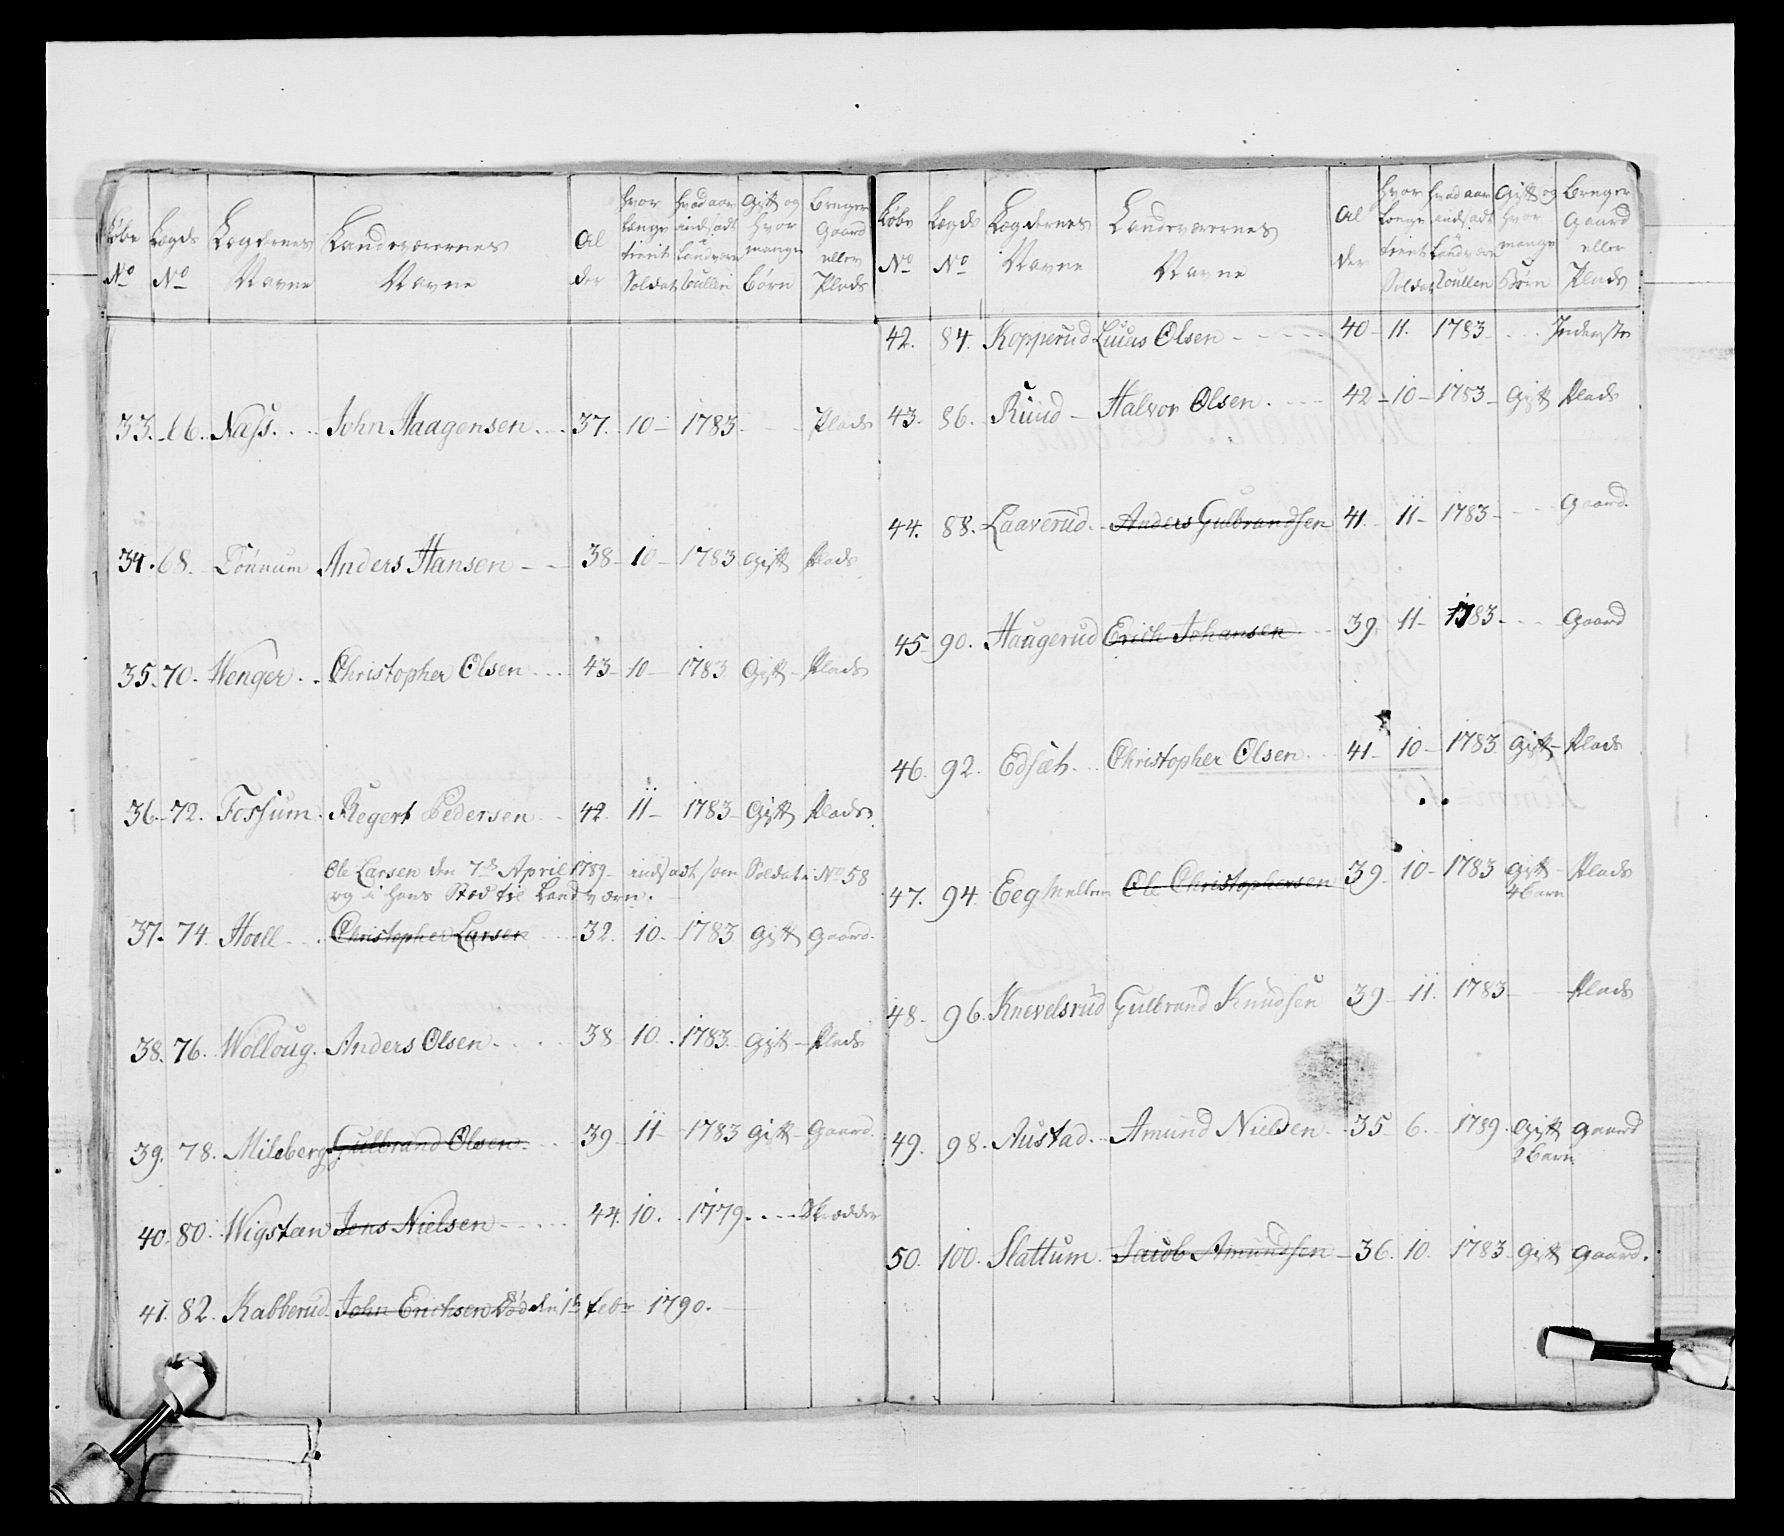 Løbe No | Lægds No | Lægdernes Navne | Landeværernes Navne | Al der | Hvor længe tient Soldat | Hvad aar indsadt i Landværn Roullen | Gift og Hvor mange Børn | Bruger Gaard eller Plads
33. 66. Næss. John Haagensen 37. 10 1783 Plads
34. 68. Tønnum Anders Hansen 38 10 1783 Gift Plads
35. 70. Wenger Christopher Olsen 43 10 1783 Gift Plads
36. 72. Fossum Regert Pedersen 42 11 1783 Gift Plads
Ole Larsen den 7de April 1789 indsadt som Soldat i No 58
og i hans Sted til Landværn.
37. 74. Hoell Christopher Larsen 32. 10. 1783 Gift Gaard.
38. 76. Wølloug. Anders Olsen 38 10. 1783 Gift Plads
39. 78. Milsberg Gulbrand Olsen 39 11 1783 Gift Gaard
40. 80. Wigstæn Jens Nielsen 44. 10. 1779 Skrædder
41. 82. Kabberud. John Erichsen død den 1te febr 1790.
Løbe No | Lægds No | Lægdernes Navne | Landeværernes Navne | Al der | Hvor længe tient Soldat | Hvad aar indsadt i Landværn Roullen | Gift og Hvor mange Børn | Bruger Gaard eller Plads
42. 84. Kopperud Lucas Olsen 40 11. 1783 Inderste
43. 86. Ruud Halvor Olsen 42 10 1783 Gift Plads
44. 88. Laaverud. Anders Gulbrandsen 41. 11 1783 Gaard.
45 90. Haugerud Erich Johansen 39. 11 1783 Gaard
46. 92. Edsæt. Christopher Olsen 41 10 1783 Gift Plads
47. 94. Eeg mellem Ole Christophersen 39 10 1783 Gift 4 Børn Plads
48. 96. Knevelsrud Gulbrand Knudsen 39 11. 1783 Plads
49. 98. Austad. Amund Nielsen 35 6. 1789. Gift 2 Børn Gaard
50. 100. Slattum. Jacob Amundsen 36. 10. 1783 Gift Gaard.